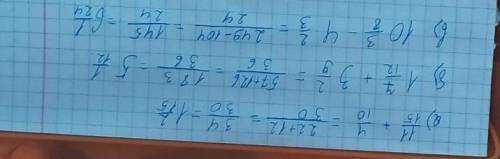 а) 11/15 + 4/10 = 22+12/30 = 34/30 = 1 2/15
б) 1 7/12 + 3 2/9 = 57+126/36 = 183/36 = 5 1/12
в) 10 3/8 - 4 2/3 = 249-104/24 = 145/24 = 6 1/24